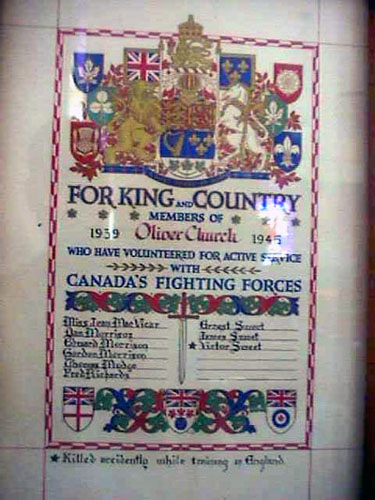 FOR KING AND COUNTRY
MEMBERS OF
1939 Oliver Church 1945
WHO HAVE VOLUNTEERED FOR ACTIVE SERVICE
WITH
CANADA'S FIGHTING FORCES
Miss Jean MacVicar
Dan Morrison
Edward Morrison
Gordon Morrison
Thomas Mudge
Fred Richards
Ernest Sweet
James Sweet
★ Victor Sweet
★ Killed accidently while training in England